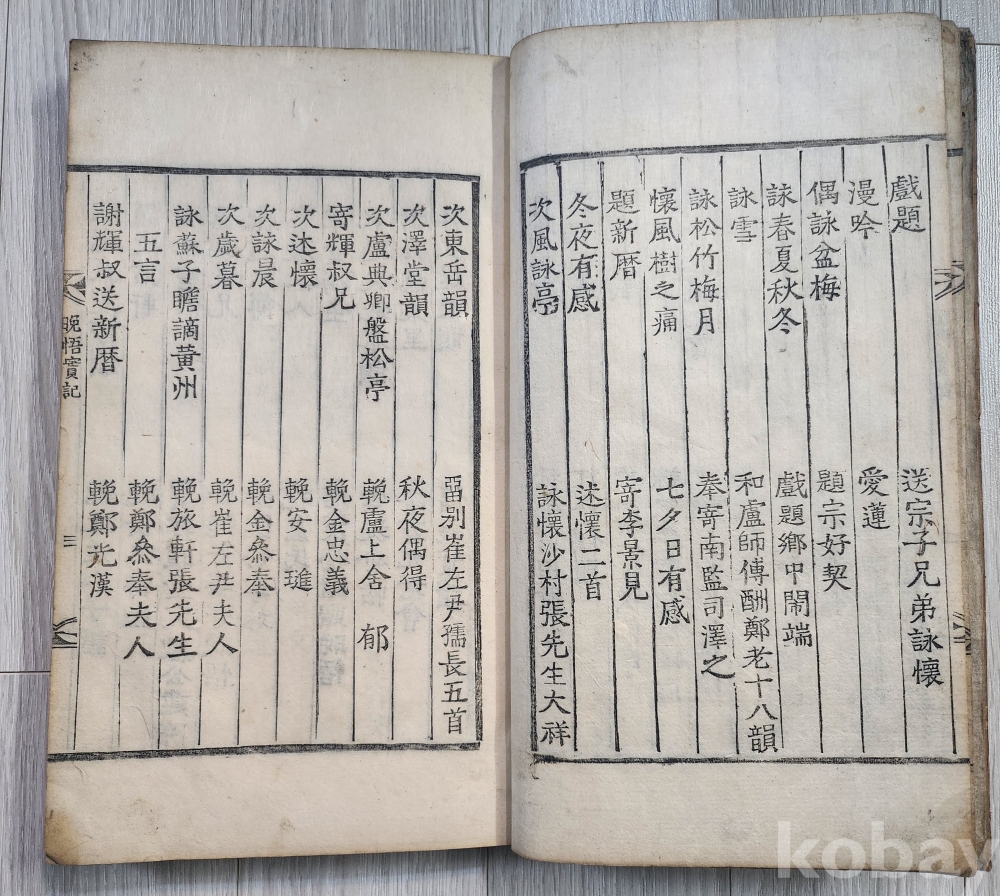 戲題 送宗子兄弟詠懷
漫吟 愛蓮
偶詠盆梅 題宗好契
詠春夏秋冬 戲題鄉中閙端
詠雪 和盧師傅酬鄭老十八韻
詠松竹梅月 奉寄南監司澤之
懷風樹之痛 七夕日有感
題新曆 寄李景見
冬夜有感 述懷二首
次風詠亭 詠懷沙村張先生大祥
次東岳韻 畱別崔左尹孺長五首
次澤堂韻 秋夜偶得
次盧典卿盤松亭 輓盧上舍 郁
寄輝叔兄 輓金忠義
次述懷 輓安
次詠晨 輓金叅奉
次歲暮 輓崔左尹夫人
詠蘇子瞻謫黃州 輓旅軒張先生
五言 輓鄭叅奉夫人
謝輝叔送新曆 輓鄭光漢
晩悟實記 三
kobay